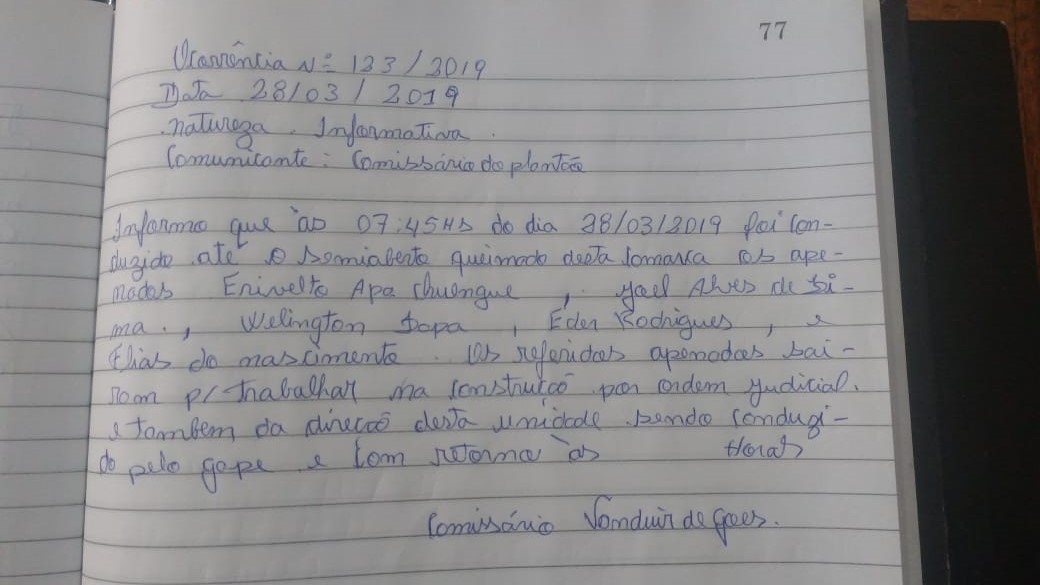 77
Ocorrência Nº 133/2019
Data 28/03/2019
.natureza. Informativa.
Comunicante: Comissário do plantão
Informo que às 07:45Hs do dia 28/03/2019 foi con-
duzido até o semiaberto queimado desta comarca os ape-
nados Erivelto Apa Chuengue, Joel Alves de Li-
ma., Welington Sopa, Eder Rodrigues, e
Elias do nascimento. Os referidos apenados saí-
rom p/ trabalhar na construcõ por ordem judicial.
e tambem da direcõ desta unidade sendo conduzi-
do pelo gape e com retorno às Horas
Comissário Vonduir de Goes.